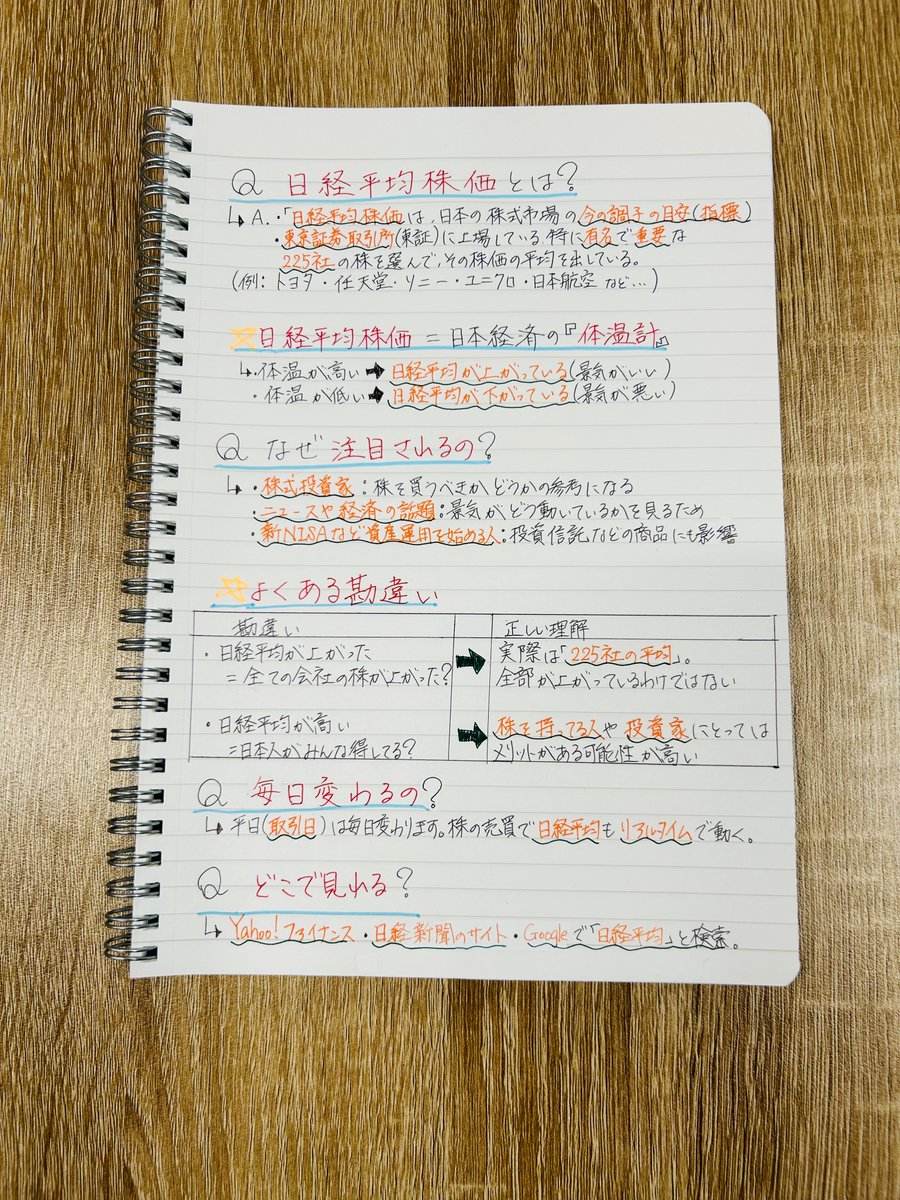 Q 日経平均株価とは?
↳A.・「日経平均株価は、日本の株式市場の今の調子の目安(指標)
・東京証券取引所(東証)に上場している特に有名で重要な
225社の株を選んで、その株価の平均を出している。
(例:トヨタ・任天堂・ソニー・ユニクロ・日本航空 など…)
☆日経平均株価=日本経済の『体温計』
↳・体温が高い➡日経平均が上がっている(景気がいい)
・体温が低い➡日経平均が下がっている(景気が悪い)
Q なぜ注目されるの?
↳・株式投資家:株を買うべきかどうかの参考になる
・ニュースや経済の話題:景気がどう動いているかを見るため
・新NISAなど資産運用を始める人:投資信託などの商品にも影響
☆よくある勘違い
勘違い 正しい理解
・日経平均が上がった ➡ 実際は「225社の平均」。
=全ての会社の株が上がった? 全部が上がっているわけではない
・日経平均が高い ➡ 株を持ってる人や投資家にとっては
=日本人がみんな得してる? メリットがある可能性が高い
Q 毎日変わるの?
↳平日(取引日)は毎日変わります。株の売買で日経平均もリアルタイムで動く。
Q どこで見れる?
↳Yahoo!ファイナンス・日経新聞のサイト・Googleで「日経平均」と検索。